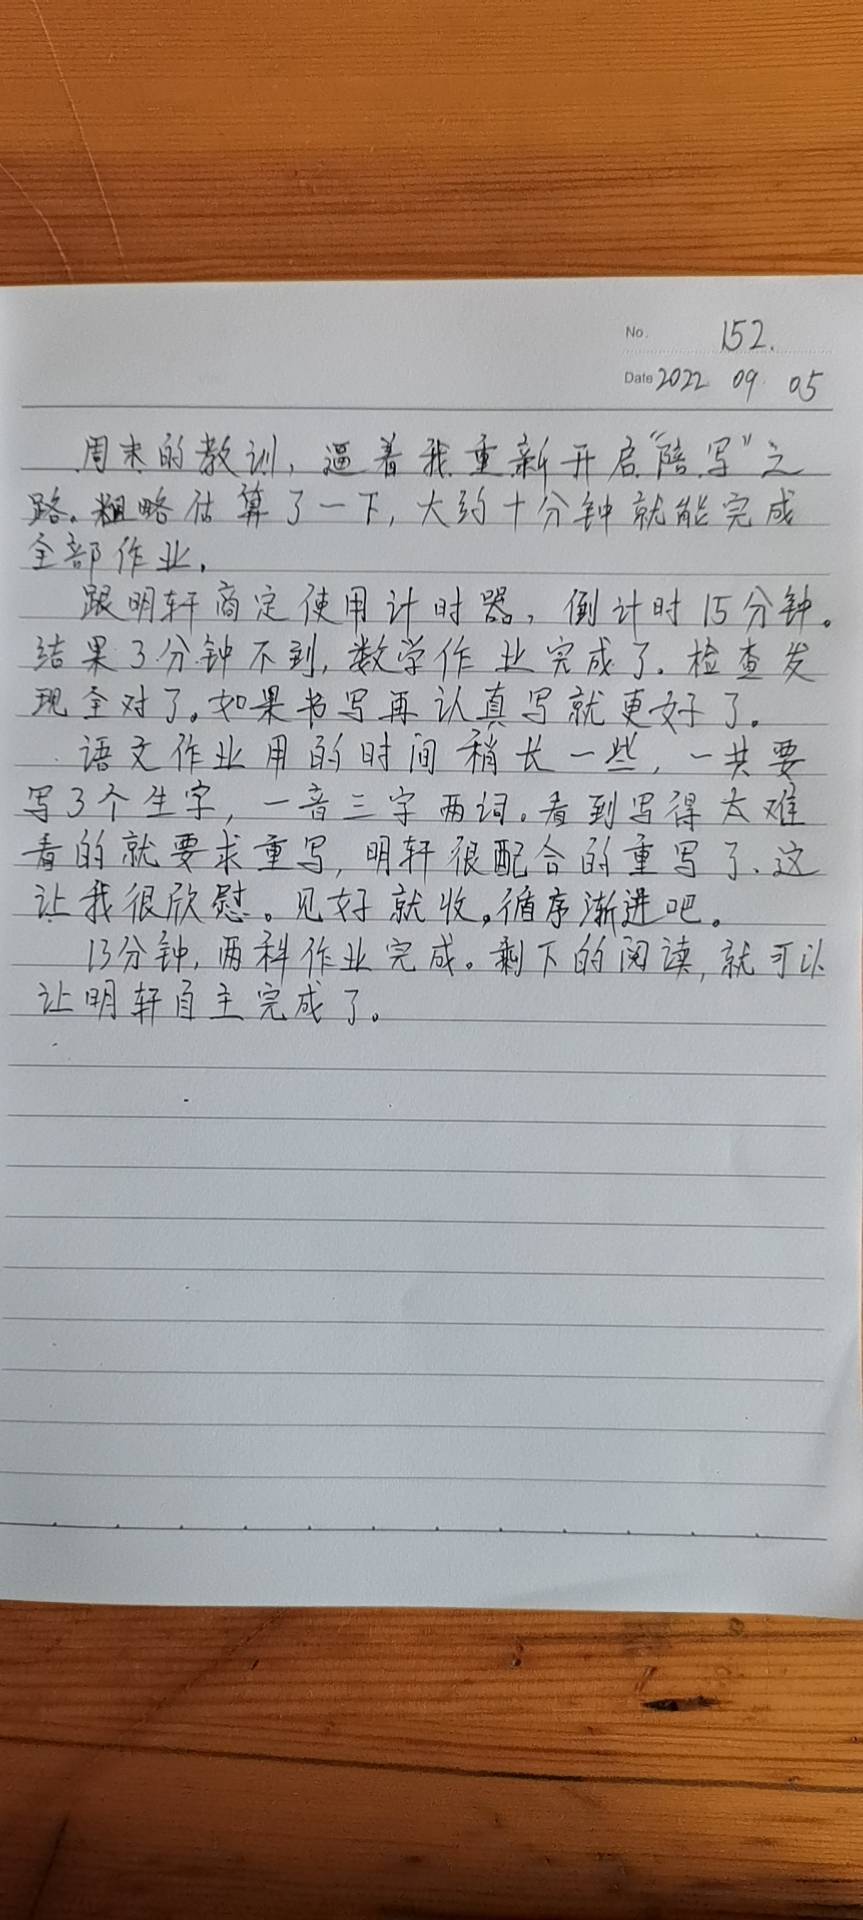 No. 152.
Date 2022 09 05
周末的教训,逼着我重新开启“陪写”之
路。粗略估算了一下,大约十分钟就能完成
全部作业.
跟明轩商定使用计时器,倒计时15分钟。
结果3分钟不到,数学作业完成了.检查发
现全对了。如果书写再认真写就更好了。
语文作业用的时间稍长一些,一共要
写3个生字,一音三字两词。看到写得太难
看的就要求重写,明轩很配合的重写了、这
让我很欣慰。见好就收。循序渐进吧。
13分钟,两科作业完成。剩下的阅读,就可以
让明轩自主完成了。